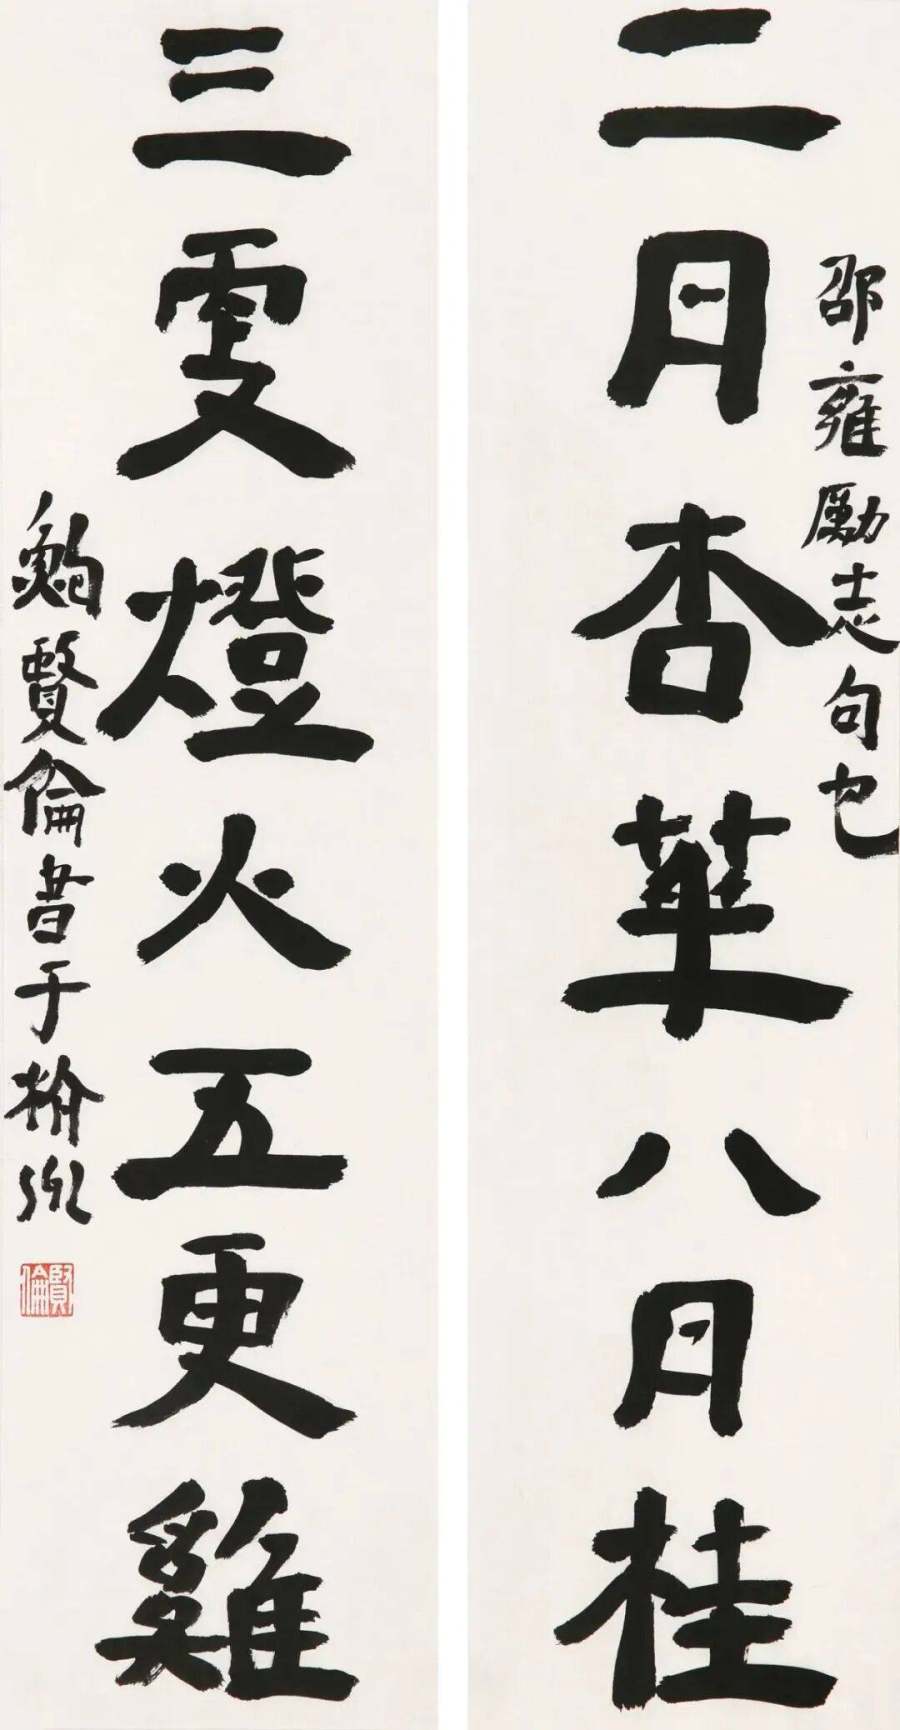 邵雍勵志句也
二月杏華八月桂
三更燈火五更雞
鮑賢倫書于
賢倫